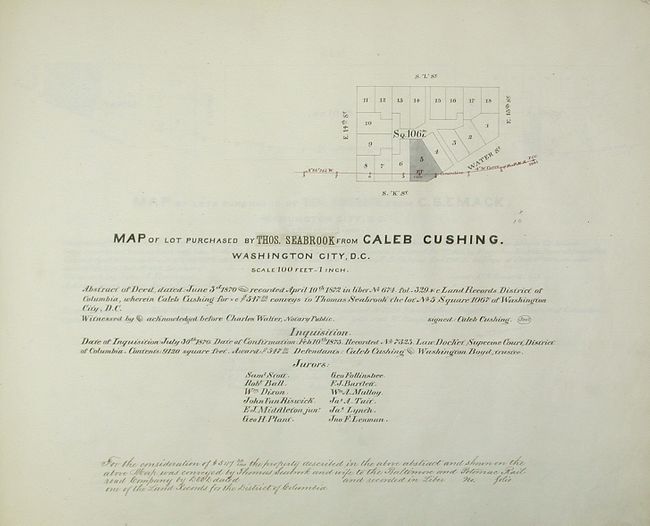 S. "L" St.
11 12 13 14 15 16 17 18
E. 14th St.
E. 15th St.
10
1
Sq. 1067
2
9
3
4
5
8 7 6
WATER St.
S. "K" St.
MAP OF LOT PURCHASED BY THOS. SEABROOK FROM CALEB CUSHING.
WASHINGTON CITY, D.C.
SCALE 100 FEET - 1 INCH.
Abstract of Deed, dated June 3rd 1870 & recorded April 10th 1872 in liber No 674. fol. 329 &c Land Records District of
Columbia, wherein Caleb Cushing for &c $547 conveys to Thomas Seabrook the lot No 5 Square 1067 of Washington
City, D.C.
Witnessed by & acknowledged before Charles Walter, Notary Public. signed. Caleb Cushing. Seal
Inquisition.
Date of Inquisition July 30th 1870. Date of Confirmation Feb 10th 1873. Recorded No 7323. Law Docket, Supreme Court, District
of Columbia. Contents: 9120 square feet. Award: $547 Defendants: Caleb Cushing & Washington Boyd, trustee.
Jurors:
Saml Scott. Geo Follinsbee.
Robt Ball. F.J. Bartlett.
Wm Dixon. Wm A. Mulloy.
John Van Riswick. Js A. Tait.
E.J. Middleton junr. Js Lynch.
Geo H. Plant. Jno F. Lenman.
For the consideration of $547 the property described in the above abstract and shown on the
above Map was conveyed by Thomas Seabrook and wife to the Baltimore and Potomac Rail
road Company by Deed dated and recorded in Liber No. folio
one of the Land Records for the District of Columbia